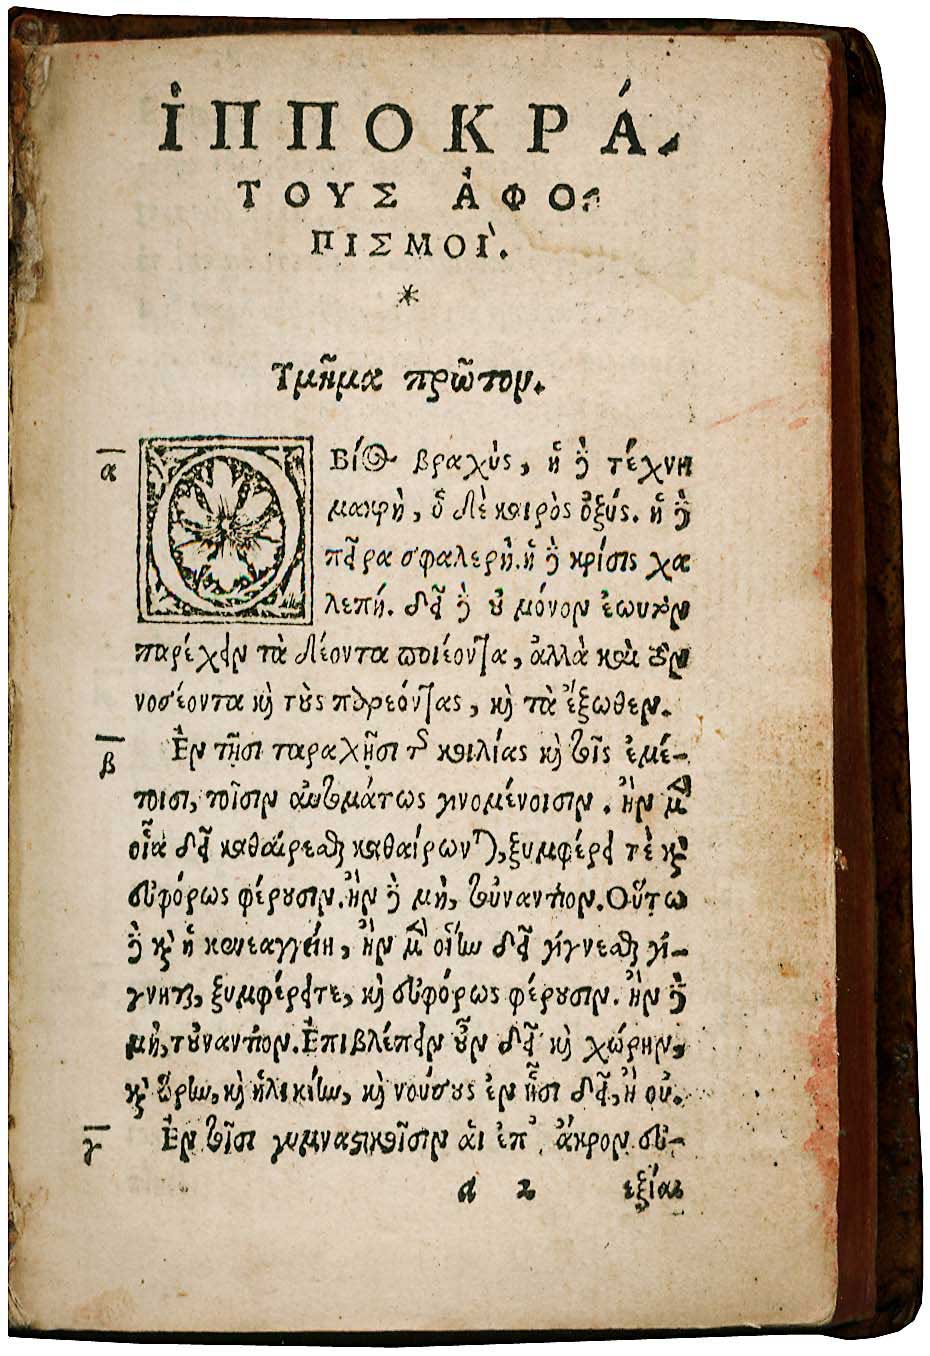 ἹΠΠΟΚΡΆ-
ΤΟΥΣ ἈΦΟ-
ΡΙΣΜΟΊ.
*
Τμῆμα πρῶτον.
α Ὁ βίος βραχὺς, ἡ δὲ τέχνη
μακρὴ, ὁ δὲ καιρὸς ὀξύς. ἡ δὲ
πεῖρα σφαλερή. ἡ δὲ κρίσις χα
λεπή. δεῖ δὲ οὐ μόνον ἑωυτὸν
παρέχειν τὰ δέοντα ποιέοντα, ἀλλὰ καὶ τὸν
νοσέοντα καὶ τοὺς παρεόντας, καὶ τὰ ἔξωθεν.
β Ἐν τῇσι ταραχῇσι τῆς κοιλίας καὶ τοῖς ἐμέ-
τοισι, τοῖσιν αὐτομάτως γινομένοισιν. ἢν μὲν
οἷα δεῖ καθαίρεσθαι καθαίρωνται, ξυμφέρει τὲ καὶ
εὐφόρως φέρουσιν. ἢν δὲ μὴ, τοὐναντίον. Οὕτω
δὲ καὶ ἡ κενεαγγείη, ἢν μὲν οἵην δεῖ γίγνεσθαι γί-
γνηται, ξυμφέρει τε, καὶ εὐφόρως φέρουσιν. ἢν δὲ
μὴ, τοὐναντίον. Ἐπιβλέπειν οὖν δεῖ καὶ χώρην,
καὶ ὥρην, καὶ ἡλικίην, καὶ νούσους ἐν ᾗσι δεῖ, ἢ οὐ.
γ Ἐν τοῖσι γυμναστικοῖσιν αἱ ἐπ' ἄκρον εὐ-
a 2 εξίαι